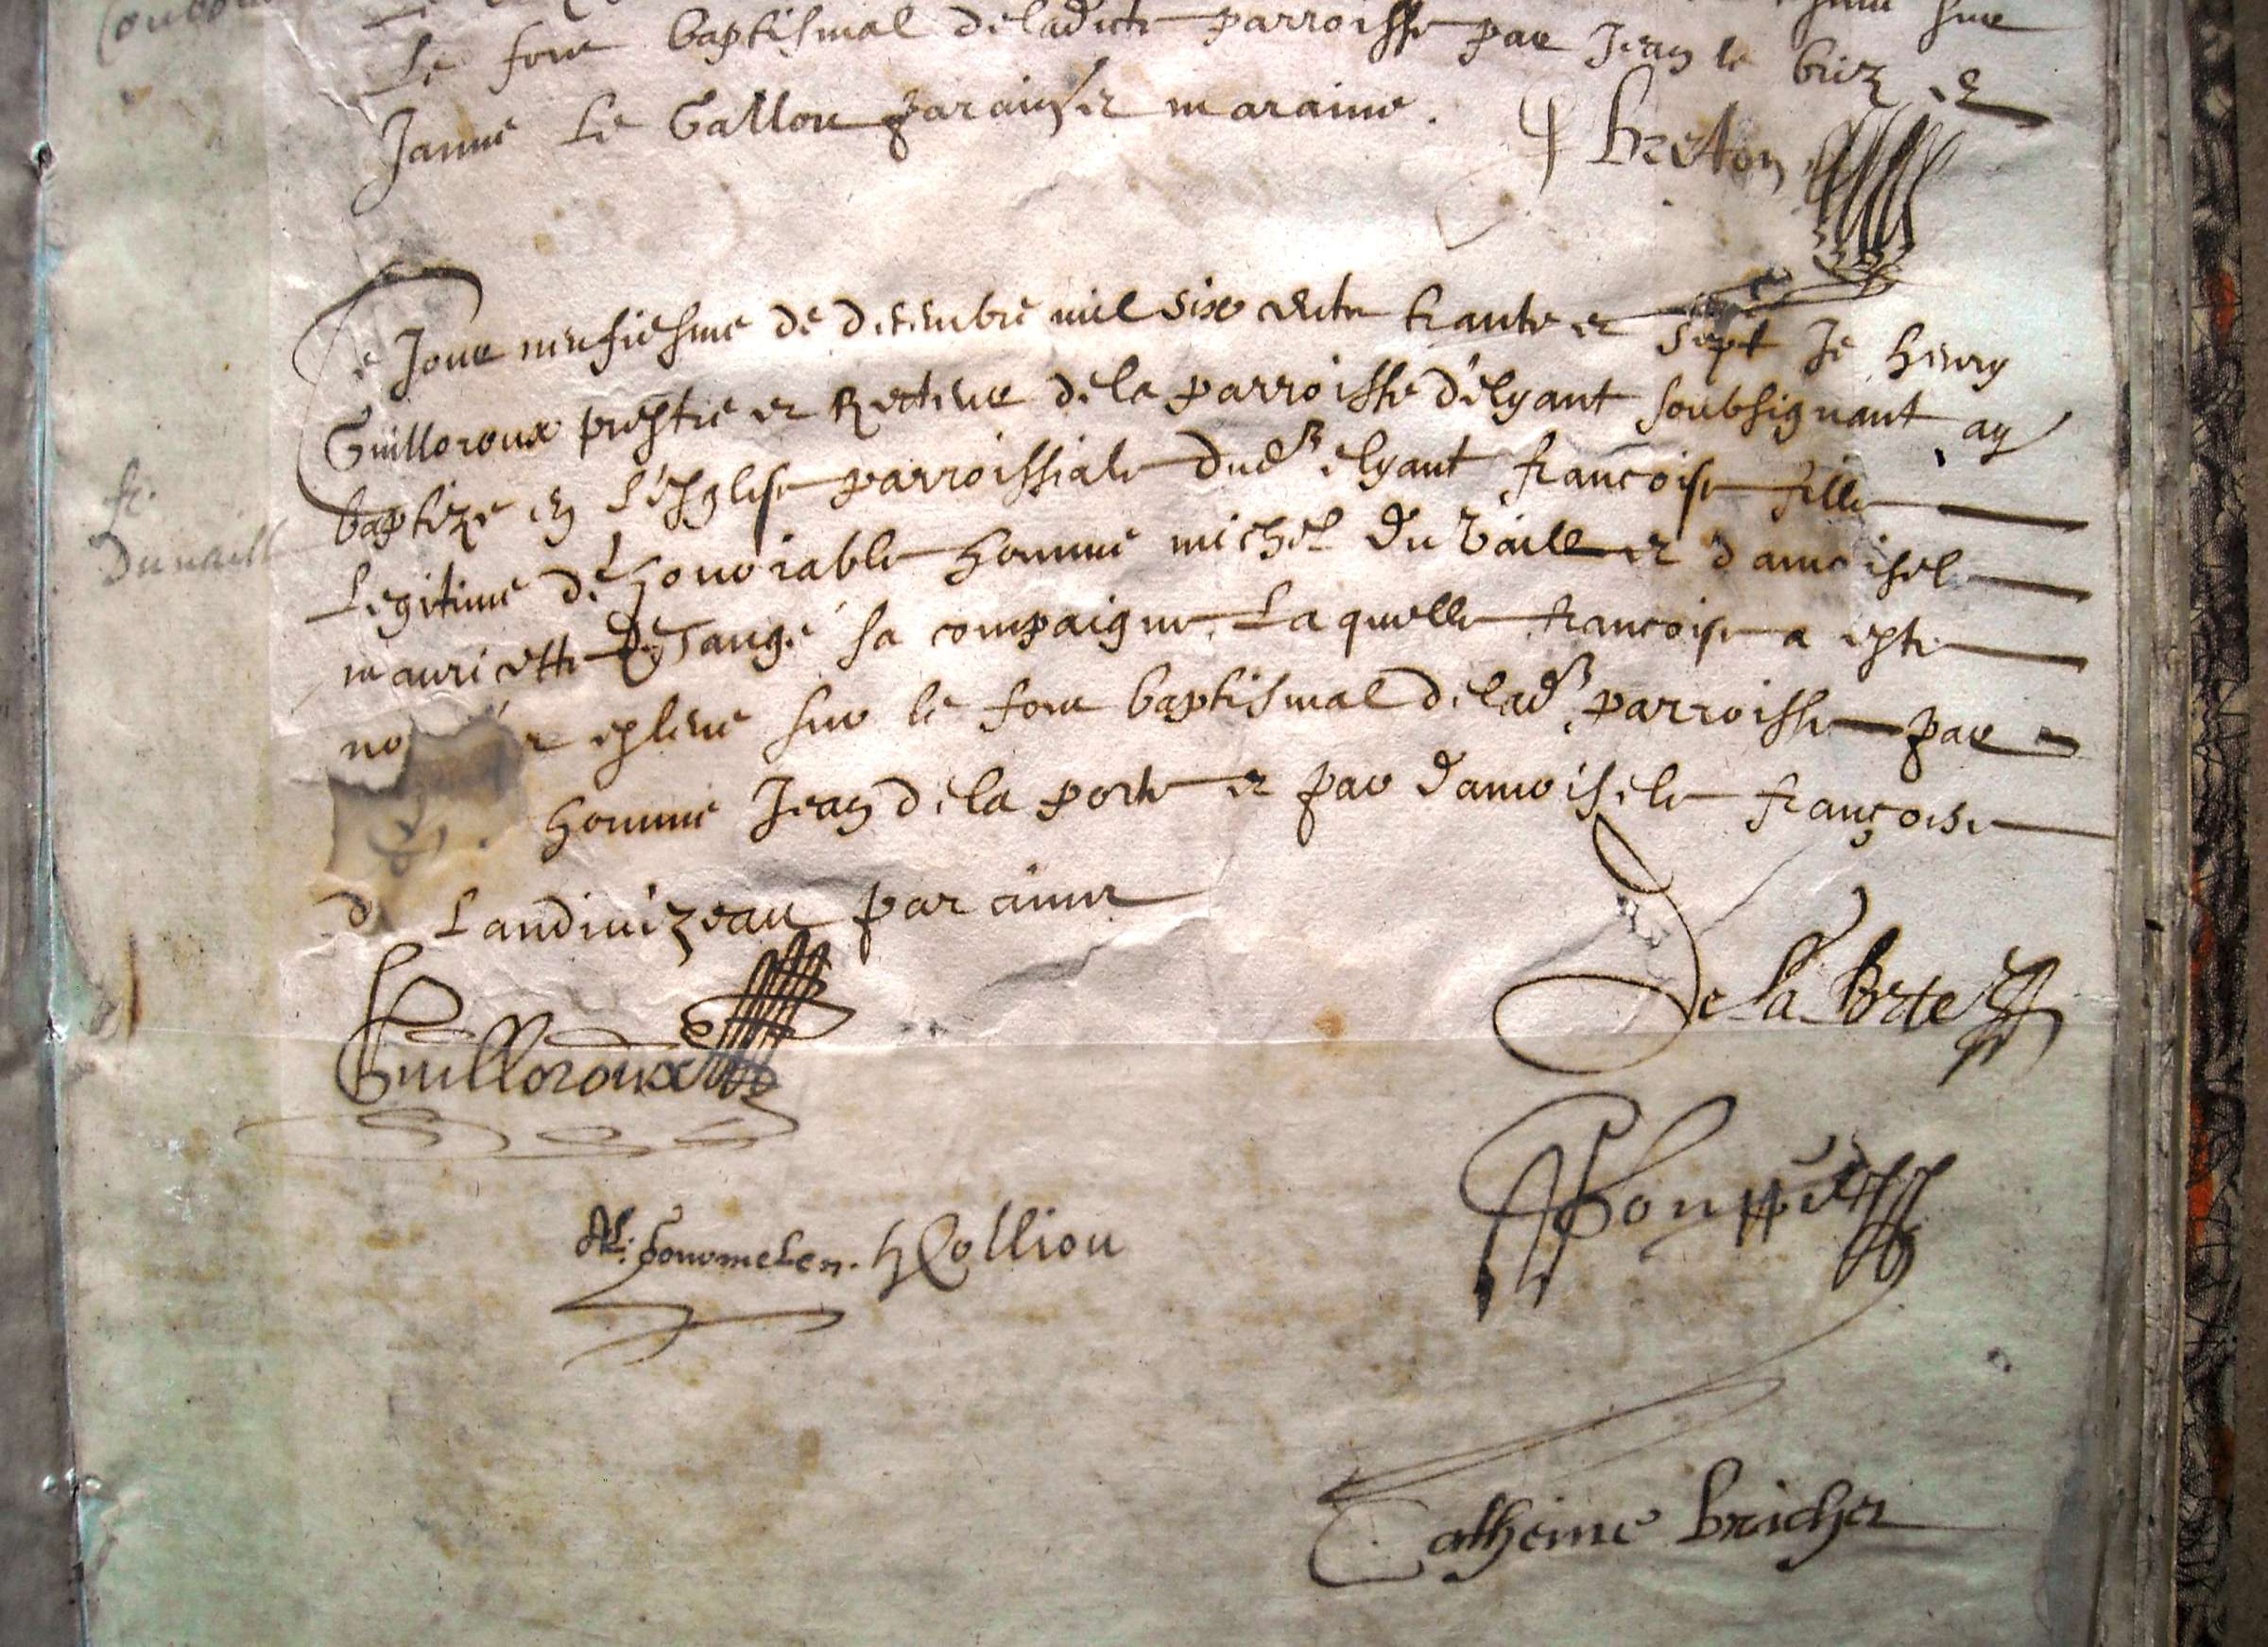 Le fons baptismal deladicte parroisse par Jean le briz et
Janne Le Gallou parain et maraine. Breton
Ce Jour neufiesme de decembre mil six cents trante et sept Je Henry
Guilloroux prestre et Recteur de la parroisse d'elyant soubsignant ay
baptize en L'esglise parroissiale dud elyant francoise fille
Legitime de honorable homme michel Du Vaill et damoisel
mauricette De Tangé sa compaigne Laquelle francoise a este
no et esleve sur le fons baptismal de lad parroisse par
homme Jean de la porte et par damoisele françoise
de Landivizeau
fr.
Duvaill
De la Porte
Guilloroux
Catherine bricher